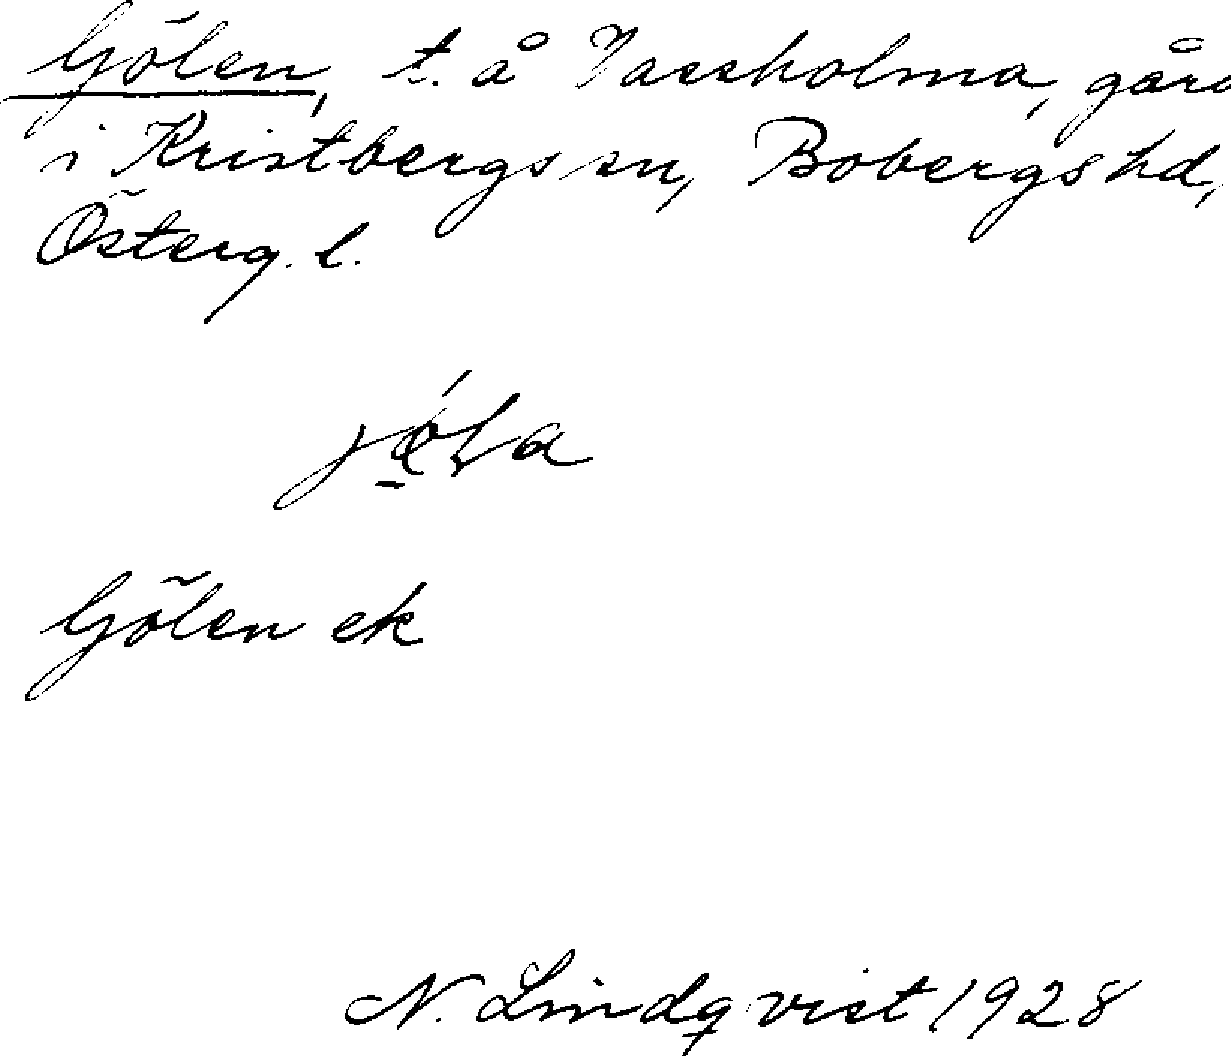 Gölen, t. å Vassholma, gård
i Kristbergs sn, Bobergs hd,
Österg. l.
Gölen ek
N. Lindqvist 1928